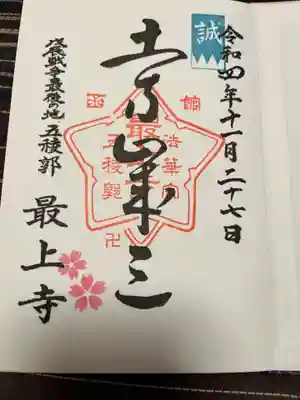 誠
令和四年十一月二十七日
土方歳三
函館
法華宗
最上寺
五稜郭
卍
戊辰戦争最後の地 五稜郭
最上寺